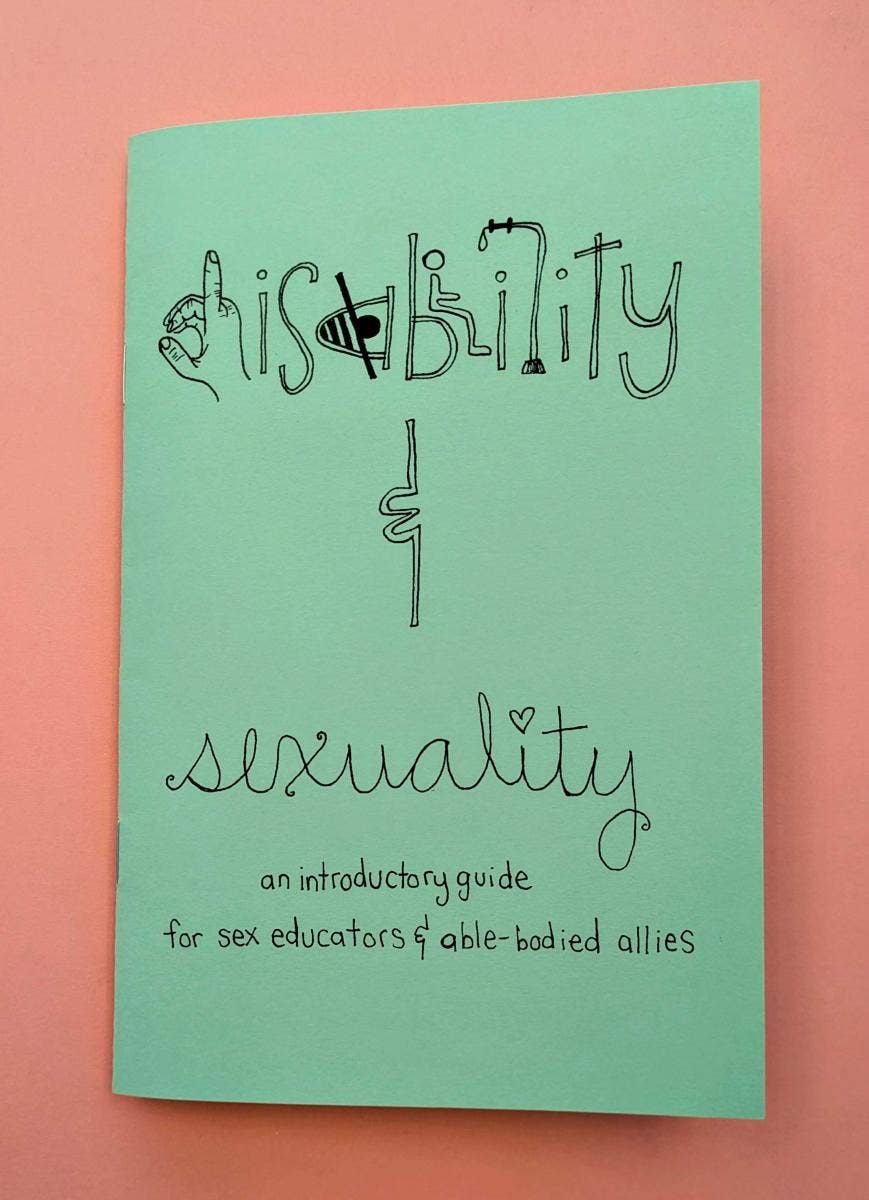 disability
&
sexuality
an introductory guide
for sex educators & able-bodied allies